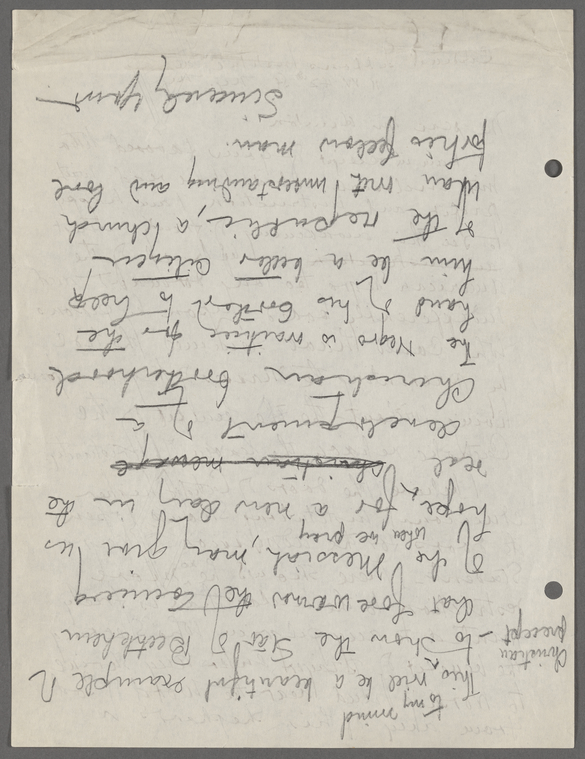 to my mind
This, will be a beautiful example of
Christian precept
- to show the Star of Bethlehem
that forewarns the coming
of the Messiah, may give us
when we pray
hope, for a new day in the
real Christian message
development of a
Christian brotherhood
The Negro is waiting for the
hand of his brother to help
him be a better citizen
of the republic, a church
man with understanding and love
for his fellow man.
Sincerely yours